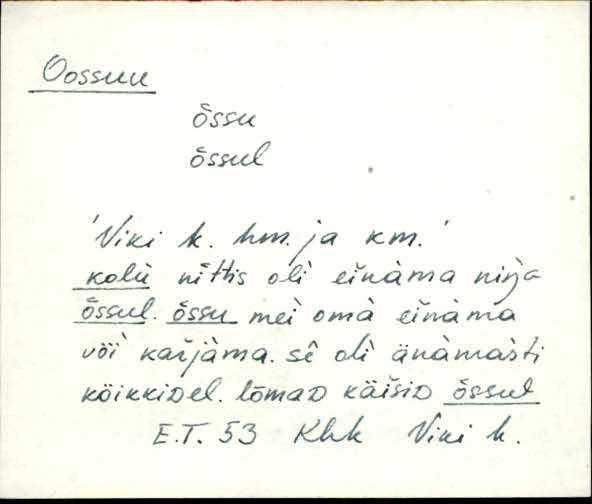 Oossuu
õssu
õssul
'Viki k. hm. ja km.'
kolù nìttis oli eìnàma nirja
õssul. õssu mei omà eìnàma
või kařjàma. sê oli änàmàsti
kõikkiDel. lõmaD käìsiD õssul
E.T. 53 Khk Viki k.